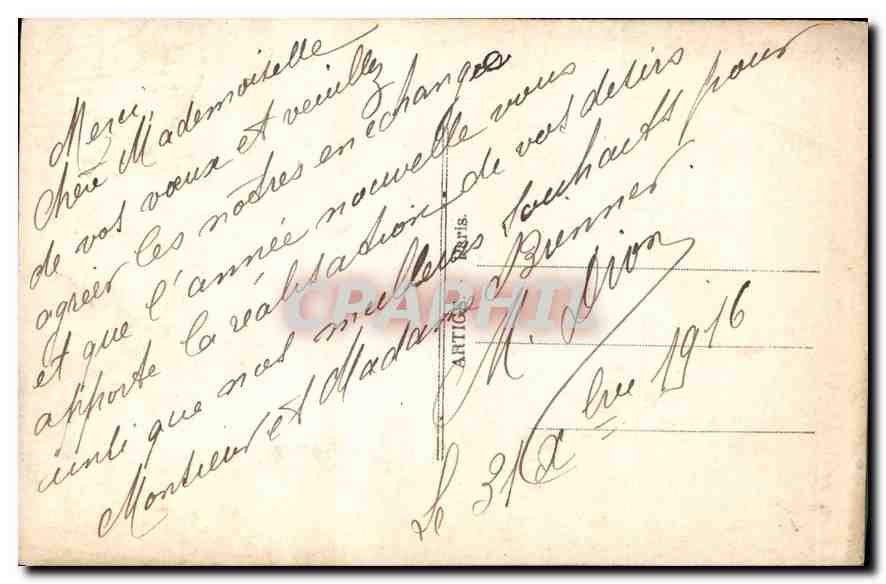 Merci,
Chère Mademoiselle
de vos vœux et veuillez
agréer les nôtres en échanges
et que l'année nouvelle vous
apporte la réalisation de vos desirs
ainsi que nos meilleurs souhaits pour
Monsieur et Madame Brenner.
M. Dion
Le 31 Xbre 1916
ARTIGE
Paris.
CPARHIL